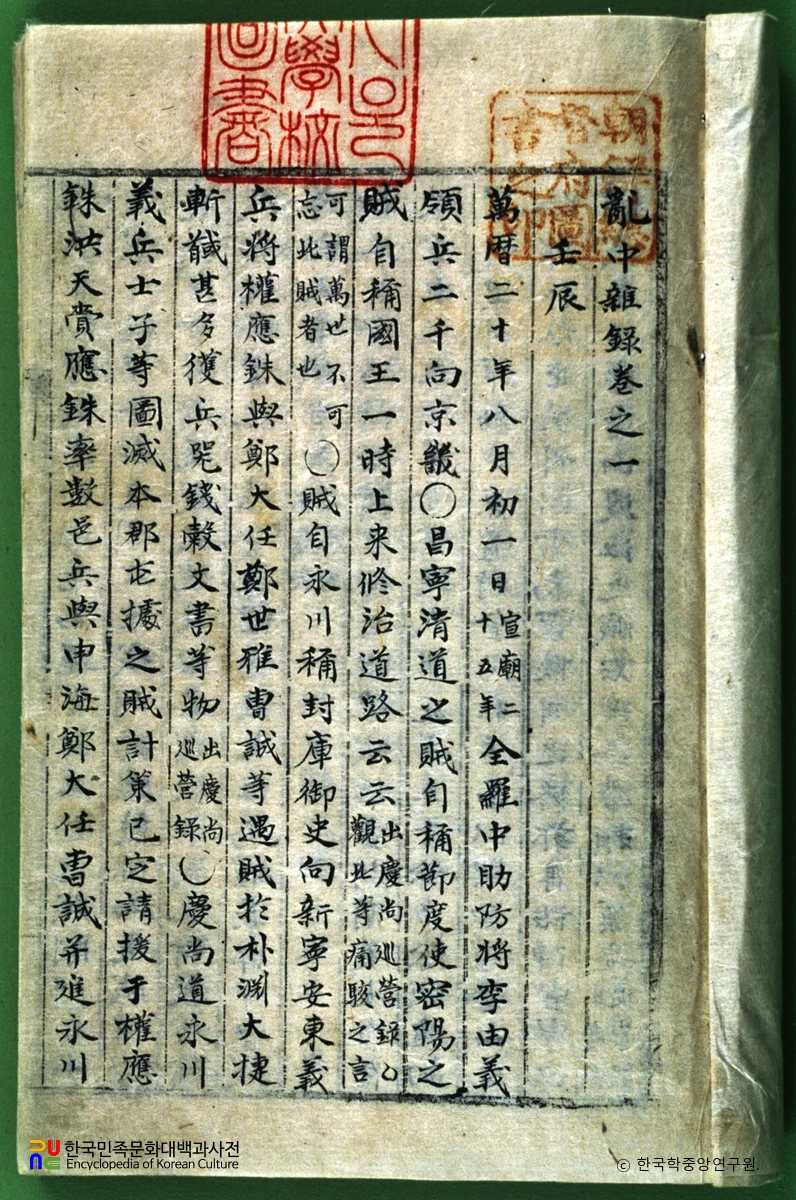 亂中雜錄卷之一
壬辰
萬曆二十年八月初一日宣廟二十五年全羅中助防將李由義
領兵二千向京畿○昌寧淸道之賊自稱節度使密陽之
賊自稱國王一時上来修治道路云云出慶尙巡營錄○觀此等痛駭之言
可謂萬世不可忘此賊者也○賊自永川稱封庫御史向新寧安東義
兵將權應銖與鄭大任鄭世雅曺誠等遇賊於朴淵大捷
斬馘甚多獲兵咒錢穀文書等物出慶尙巡營錄○慶尙道永川
義兵士子等圖滅本郡屯據之賊計策已定請援于權應
銖洪天賚應銖率數邑兵與申海鄭大任曺誠并進永川
朝鮮總督府圖書之印
한국민족문화대백과사전
Encyclopedia of Korean Culture
© 한국학중앙연구원.